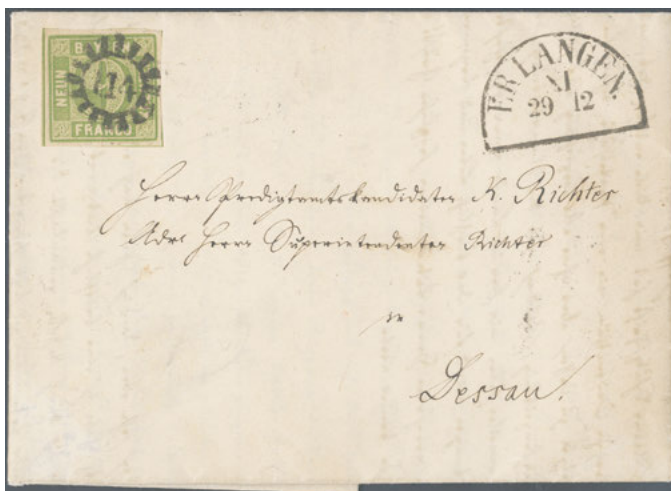 BAYERN
NEUN
FRANCO
ERLANGEN.
XI
29 12
Herrn Predigtamtskandidaten K. Richter
Adr. Herrn Superintendenten Richter
in
Dessau.